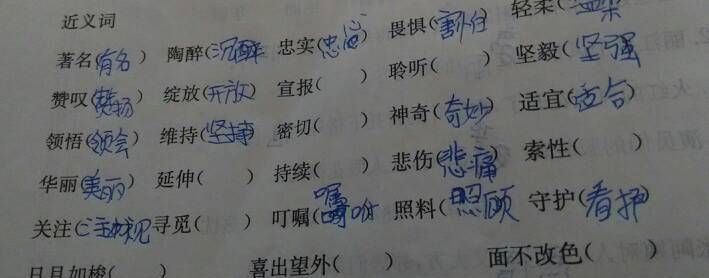 近义词
著名(有名) 陶醉(沉醉) 忠实(忠心) 畏惧(害怕) 轻柔(
赞叹(赞扬) 绽放(开放) 宣报( ) 聆听( ) 坚毅(坚强)
领悟(领会) 维持(坚持) 密切( ) 神奇(奇妙) 适宜(适合)
华丽(美丽) 延伸( ) 持续( ) 悲伤(悲痛) 索性( )
关注(注视) 寻觅( ) 叮嘱(嘱咐) 照料(照顾) 守护(看护)
日月如梭( ) 喜出望外( ) 面不改色( )